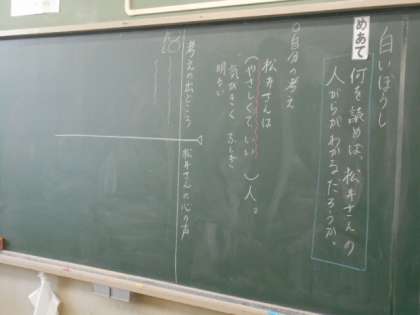 白いぼうし
めあて
何を読めば、松井さんの
人がらがわかるだろうか。
○自分の考え
松井さんは
(やさしくていい)人。
明るい
松井さんの心の声
考えの出どころ